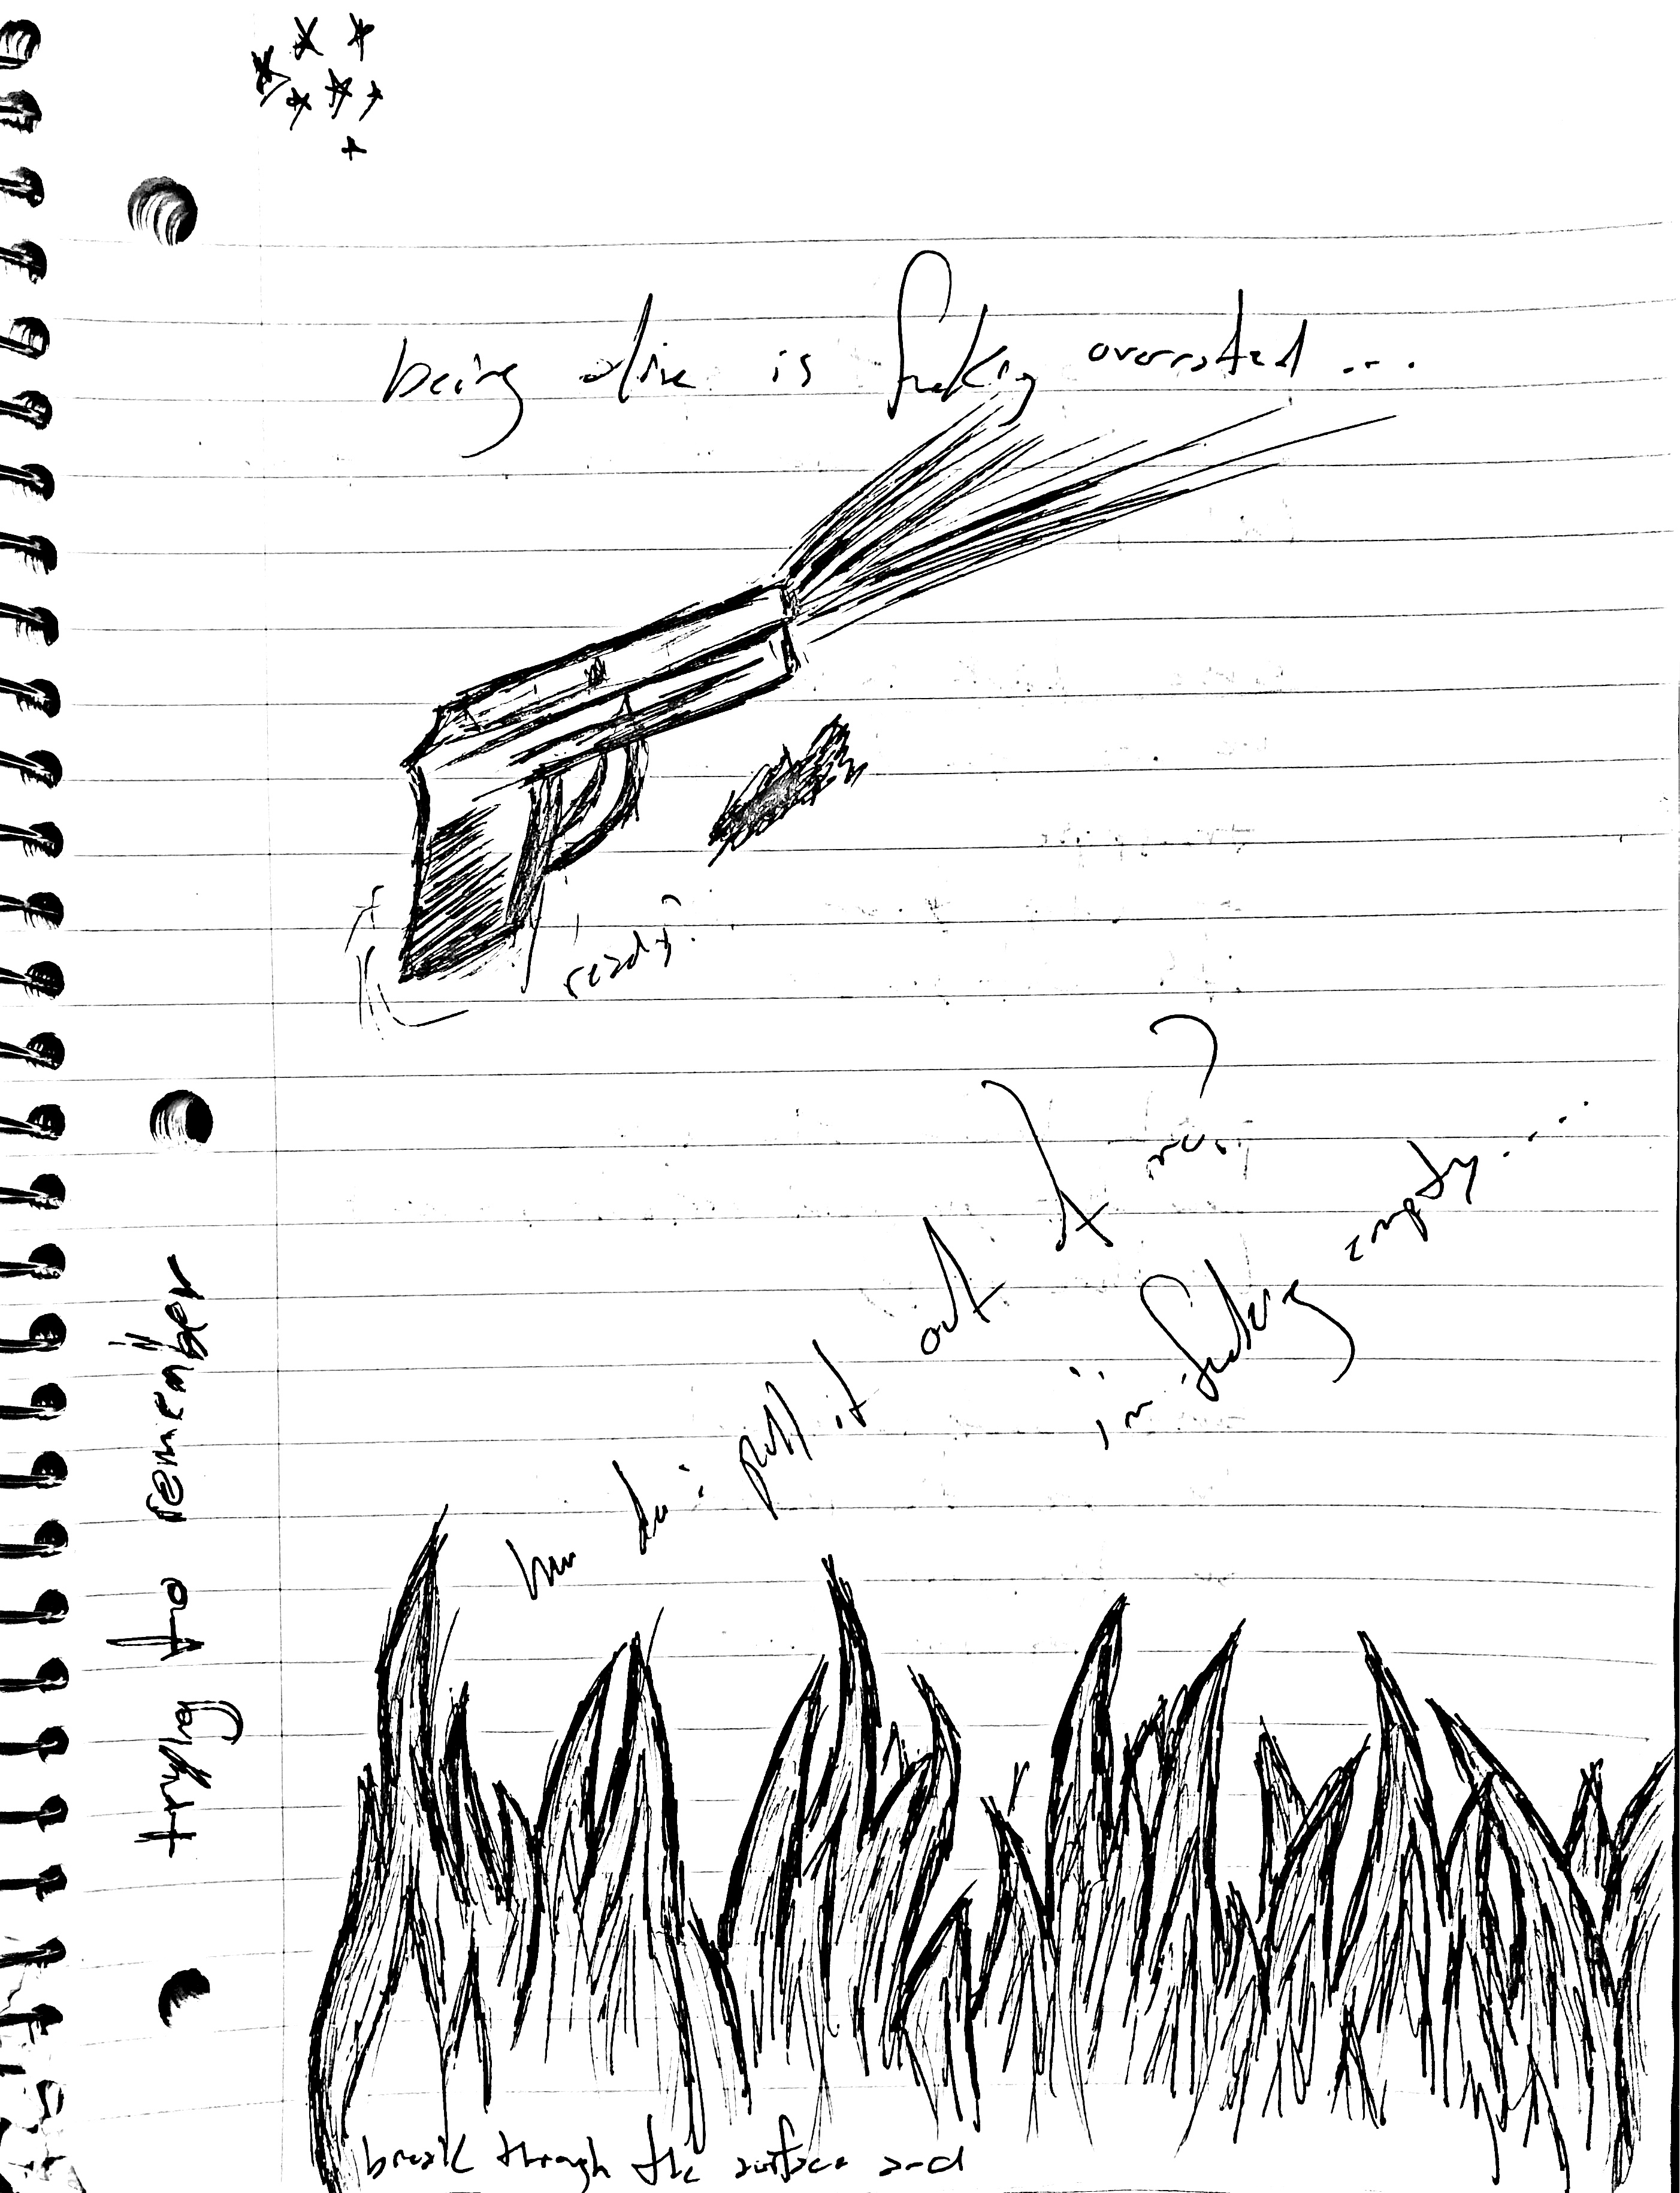 being alive is fucking overrated...
ready?
how do i pull it out of me?
i'm fucking empty....
trying to remember
break through the surface and